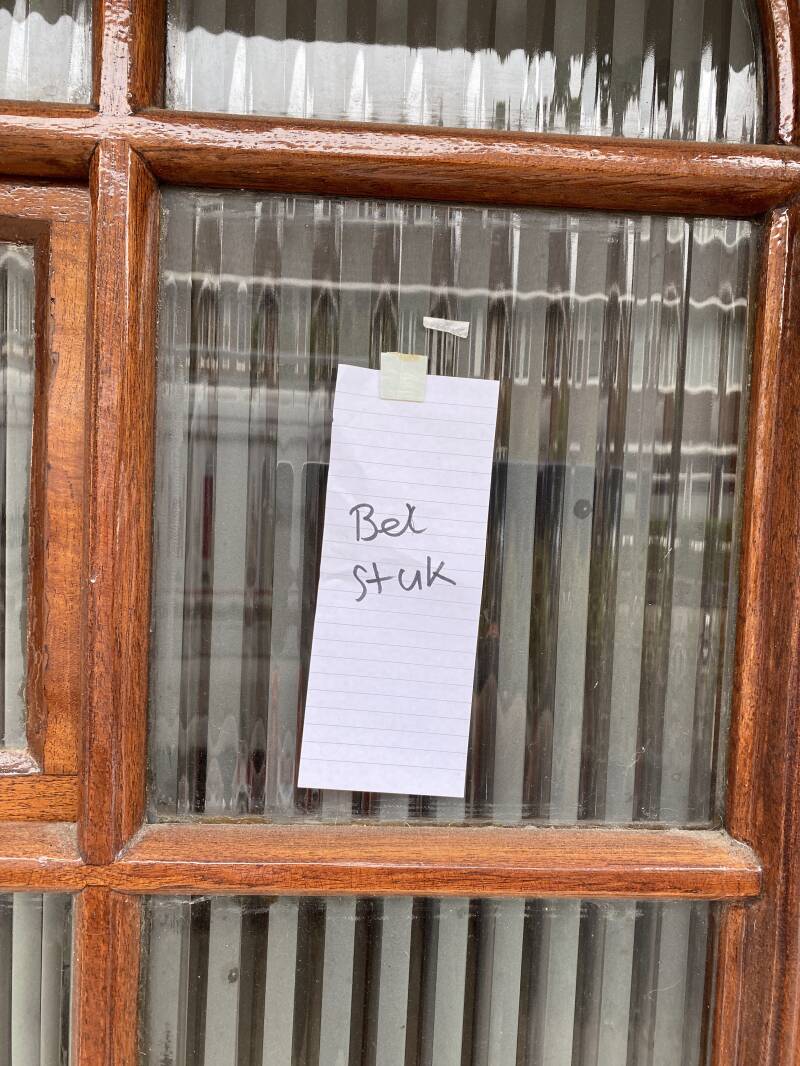 Bel
stuk